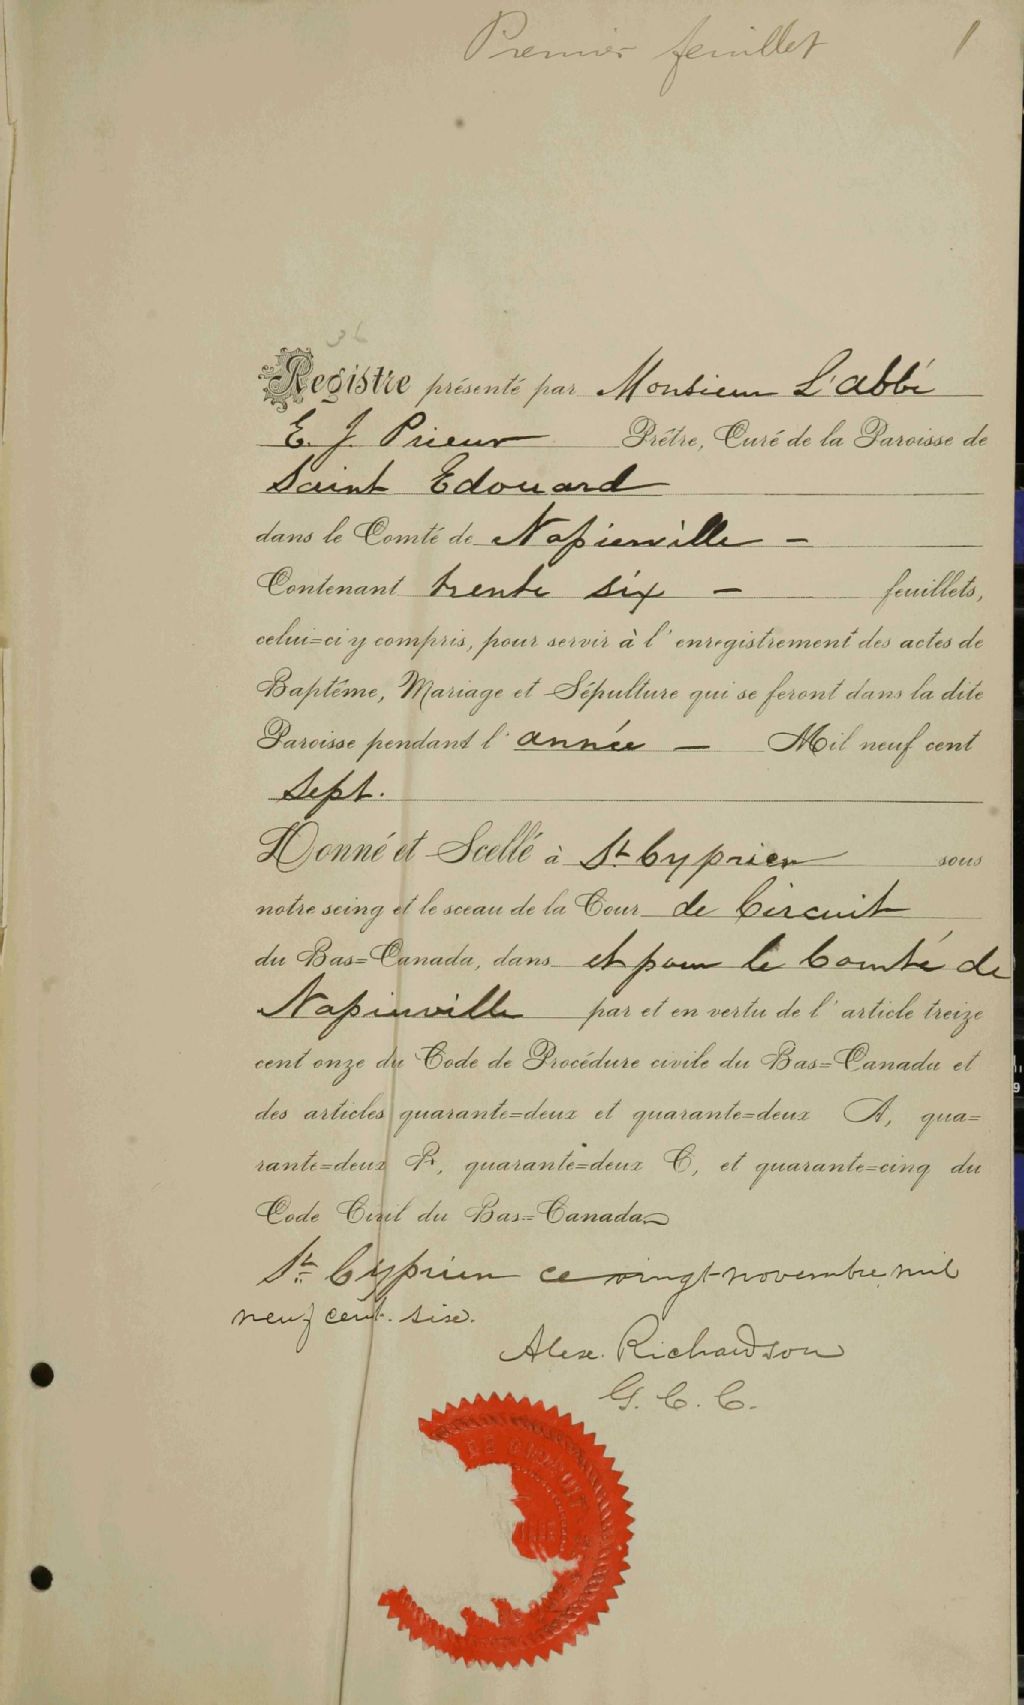 Premier feuillet 1
36
Registre présenté par Monsieur L'abbé
E. J. Prieur Prêtre, Curé de la Paroisse de
Saint Edouard
dans le Comté de Napierville –
Contenant trente six – feuillets,
celui=ci y compris, pour servir à l'enregistrement des actes de
Baptême, Mariage et Sépulture qui se feront dans la dite
Paroisse pendant l'année – Mil neuf cent
sept.
Donné et Scellé à St. Cyprien sous
notre seing et le sceau de la Cour de Circuit
du Bas=Canada, dans et pour le Comté de
Napierville par et en vertu de l'article treize
cent onze du Code de Procédure civile du Bas=Canada et
des articles quarante=deux et quarante=deux A, qua=
rante=deux B, quarante=deux C, et quarante=cinq du
Code Civil du Bas=Canada
St. Cyprien ce vingt novembre mil
neuf cent six.
Alex. Richardson
G. C. C.
DE CIRCUIT